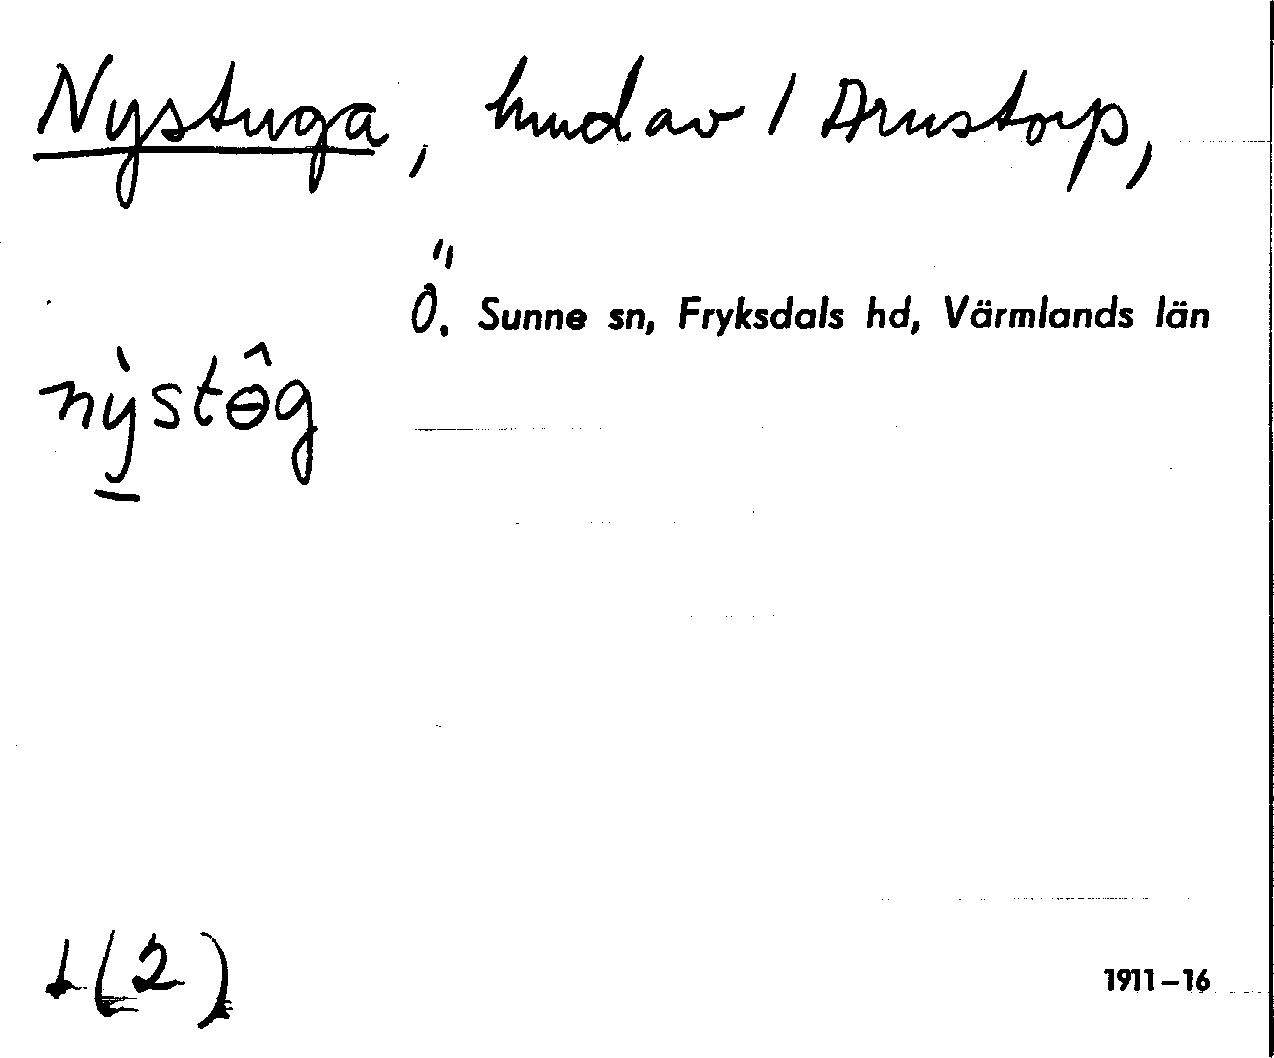 Nystuga, hmd av 1 Arnstorp,
Ö. Sunne sn, Fryksdals hd, Värmlands län
nỳstɵ̂g
1911–16